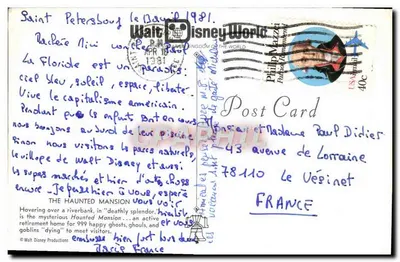 Saint Petersbourg le 13 avril 1981.
Walt Disney World
La Floride est un paradis:
ciel bleu, soleil, espace, liberté.
Vive le capitalisme américain.
Pendant que les enfants sont en
nous bronzons au bord de leur piscine
sinon nous visitons les parcs naturels,
le village de Walt Disney et aussi
les super marchés et bien d'autres choses
encore. Je pense bien à vous, espère
THE HAUNTED MANSION
vous voir
Hovering over a riverbank, in "deathly splendor,"
is the mysterious Haunted Mansion... an active
retirement home for 999 happy ghosts, ghouls, and
goblins "dying" to meet visitors.
© Walt Disney Productions
bientôt
et vous
embrasse bien fort tous deux
Marie France
PM
APR
1981
Philip Mazzei
Patriot Remembered
USAirmail
40c
Post Card
Monsieur et Madame Paul Didier
43 avenue de Lorraine
78110 Le Vésinet
FRANCE